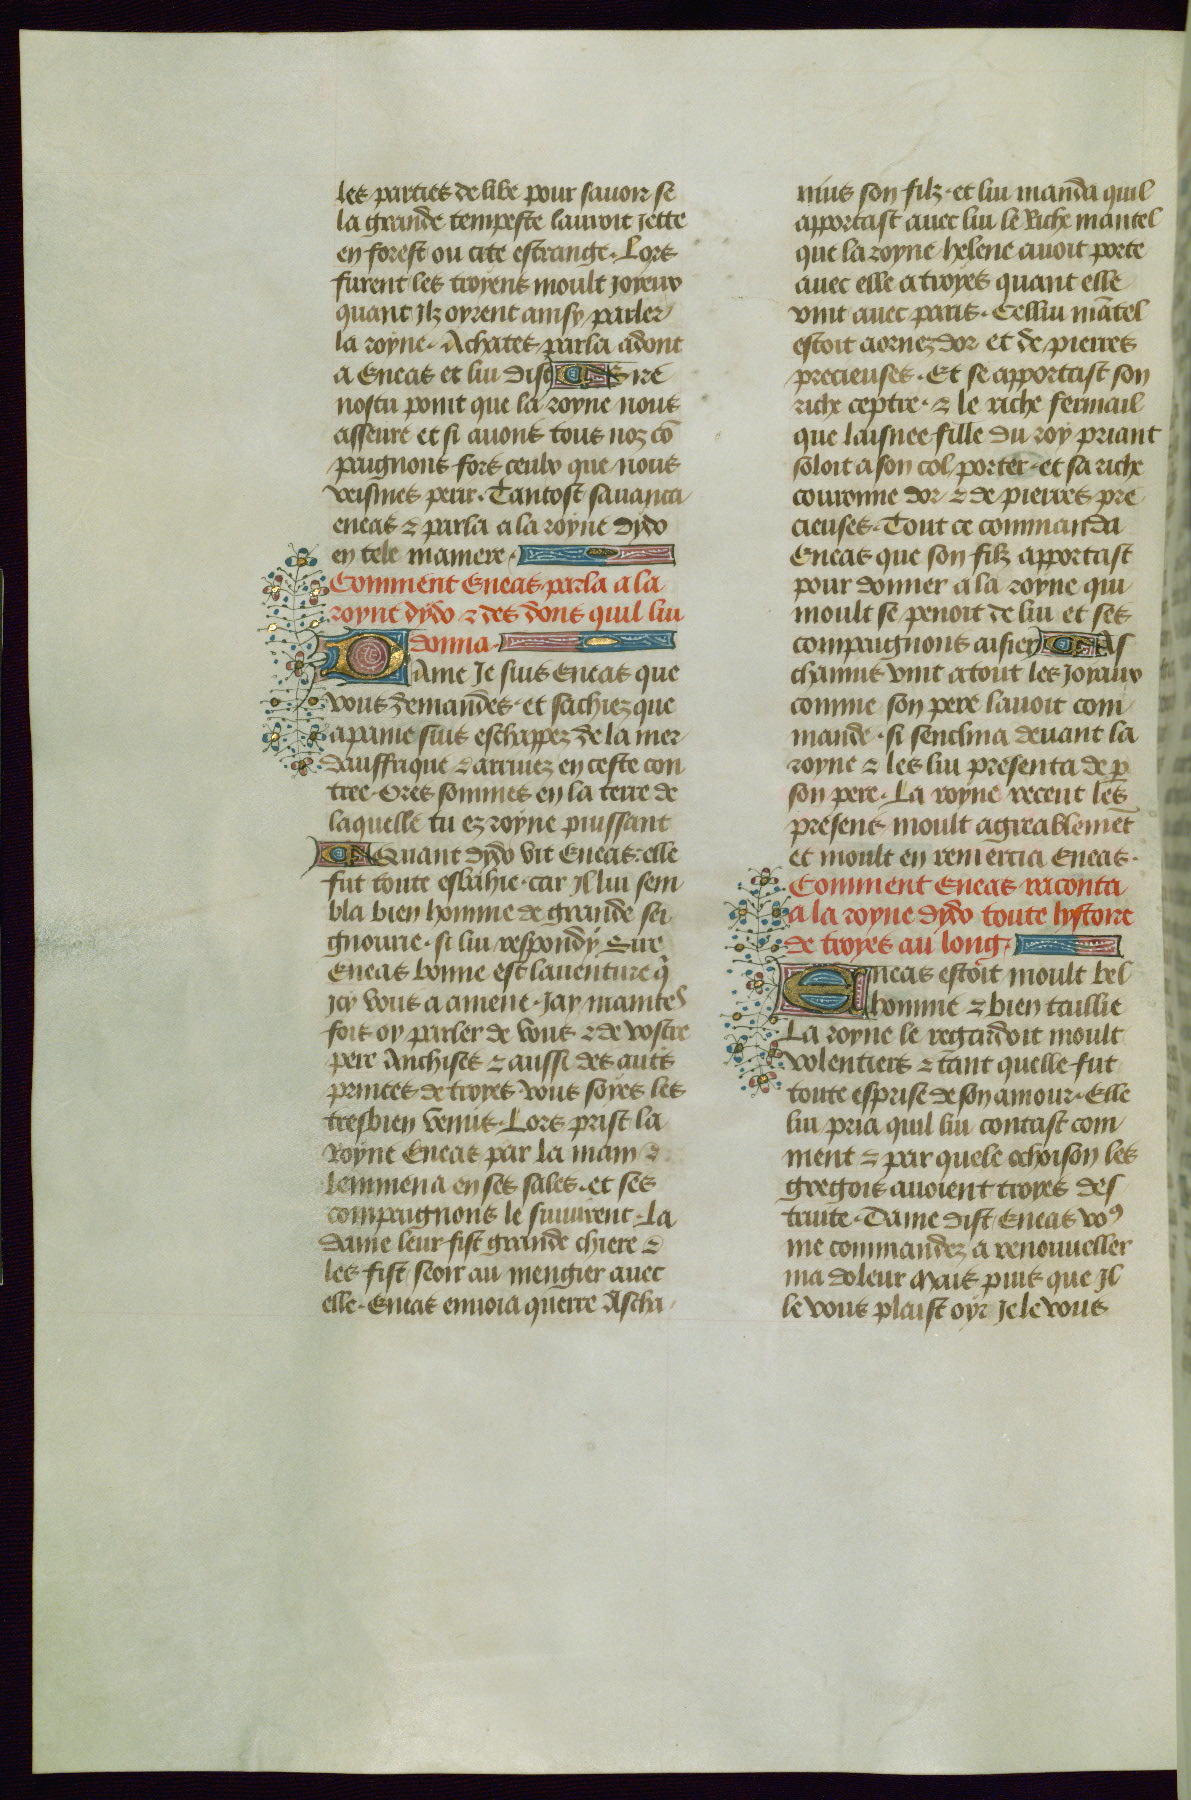 les parties de libe pour sauoir se
la grande tempeste lauroit jette
en forest ou cite estrange. Lors
furent les troyens moult joyeux
quant Ilz oyrent ainsy parler
la royne. Achates parla adont
a Eneas et lui dist Sire
nostu point que la royne nous
asseure et si auons tous noz cō
paignons fors ceulx que nous
veismes perir. Tantost sauanca
eneas & parla a la royne dydo
en tele maniere.
Comment Eneas parla a la
royne dydo & des dons quil lui
donna.
Dame Je suis Eneas que
vous demandes. et sachiez que
a paine suis eschappez de la mer
dauffrique & arriuez en ceste con
tree. Ores sommes en la terre de
laquelle tu ez royne puissant
Quant dydo vit Eneas: elle
fut toute esbahie. car Il lui sem
bla bien homme de grande sei
gnourie. si lui respondy Sire
Eneas bonne est lauenture q̄
jcy vous a amene. Jay maintes
fois oy parler de vous & de vostre
pere Anchises & aussi des autēs
princes de troyes. vous soyes les
tresbien venus. Lors prist la
Royne Eneas par la main &
lemmena en ses sales. et ses
compaignons le suiuirent. La
dame leur fist grande chiere &
les fist seoir au mengier auec
elle. Eneas enuoia querre Asca
nius son filz. et lui manda quil
apportast auec lui le Riche mantel
que la royne helene auoit porte
auec elle a troyes quant elle
vint auec paris. Cellui mātel
estoit aornez dor et de pierres
precieuses. Et se apportast son
riche ceptre. & le riche fermail
que laisnee fille du roy priant
soloit a son col porter. et sa riche
couronne dor & de pierres pre
cieuses. Tout ce commanda
Eneas que son filz apportast
pour donner a la royne qui
moult se penoit de lui et ses
compaignons aisier As
chanius vint a tout les joyaux
comme son pere lauoit com
mande. si senclina deuant la
royne & les lui presenta de p̄
son pere. La royne receut les
present moult agreablemēt
et moult en remercia Eneas.
Comment Eneas raconta
a la royne dydo toute lystoire
de troyes au long.
Eneas estoit moult bel
homme & bien taillie
La royne le regardoit moult
volentiers & tant quelle fut
toute esprise de son amour. Elle
lui pria quil lui contast com
ment & par quele ochoison les
gregois auoient troyes des
truite. Dame dist Eneas voꝯ
me commandez a renouueller
ma doleur Mais puis que Il
le vous plaist oyr Je le vous